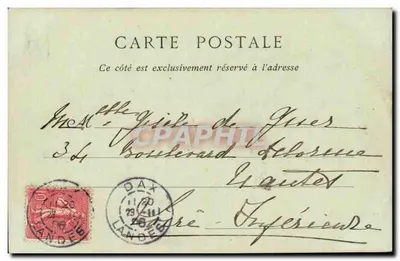 CARTE POSTALE
Ce côté est exclusivement réservé à l'adresse
Melle Gisèle de Guer
34 Boulevard Delorme
Nantes
Loire Inférieure
CPAPHIL
DAX
23
LANDES
LANDES